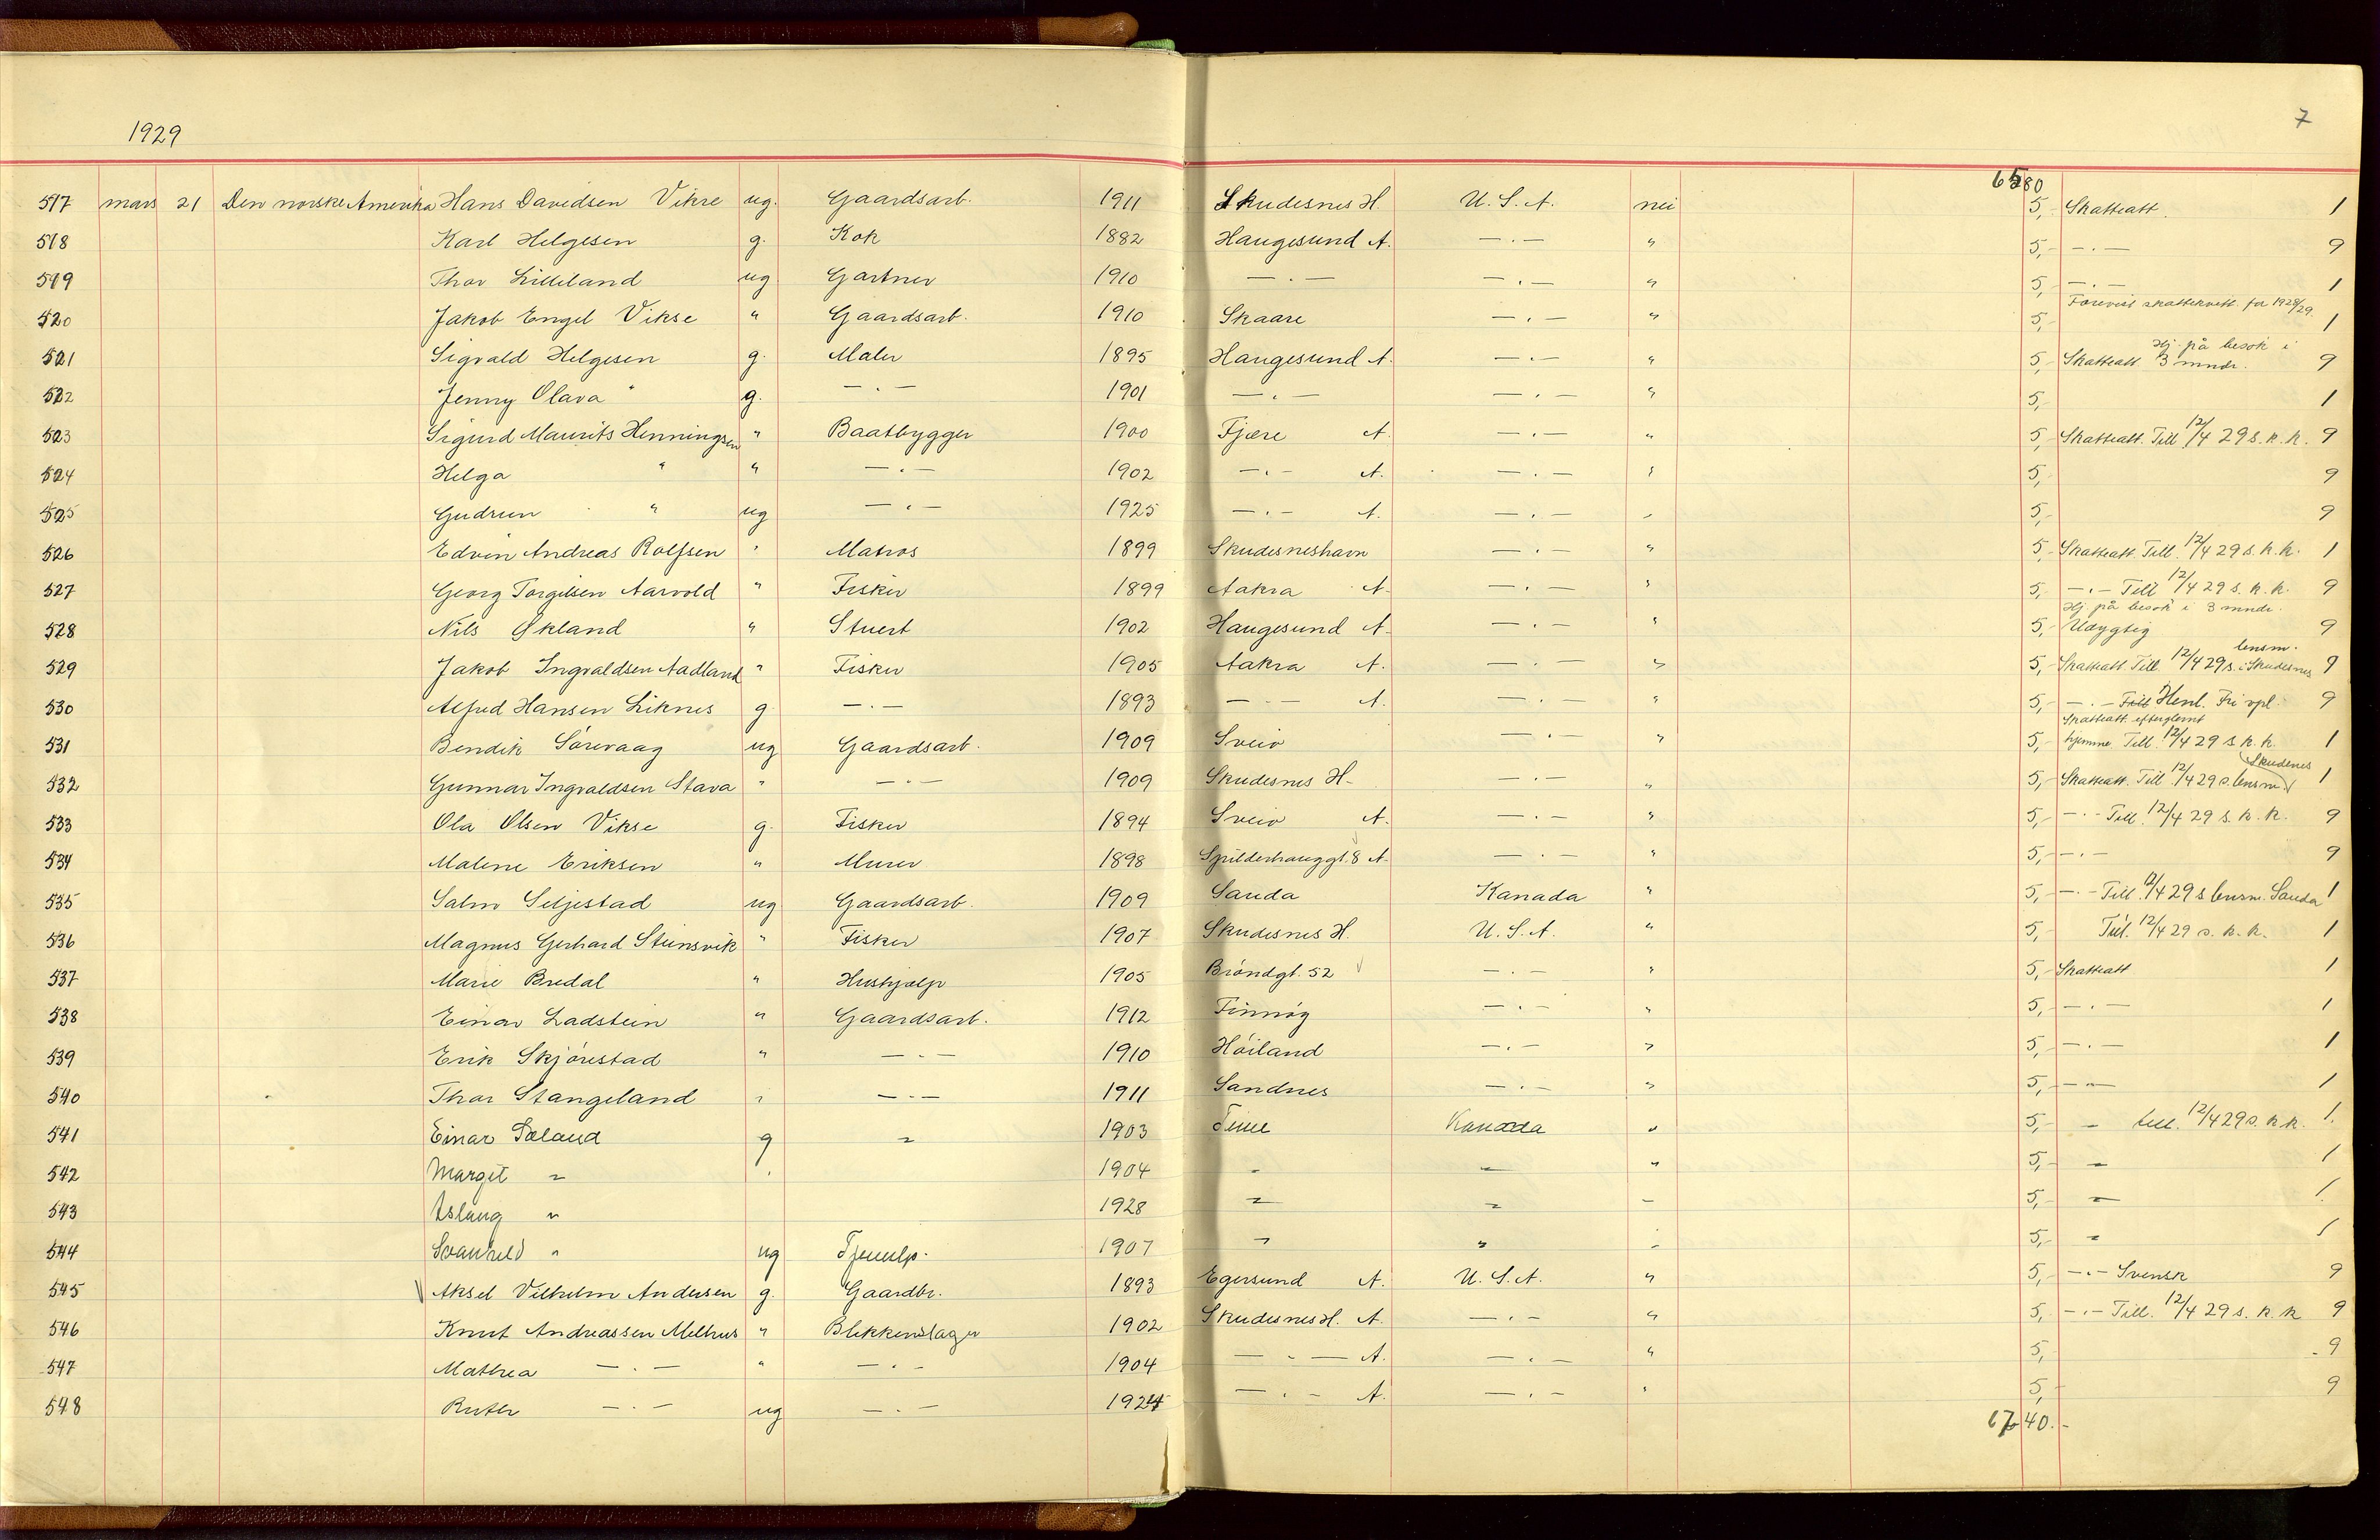 1929
7
6580
517 mars 21 Den norske Amerika Hans Davidsen Vikre ug. Gaardsarb. 1911 Skudesnes H. U.S.A. nei 5,- Skatteatt. 1
518 Karl Helgesen g. Kok 1882 Haugesund A. —.— " 5,- —.— 9
519 Thor Lilleland ug Gartner 1910 —.— —.— " 5,- —.— 1
520 Jakob Engel Vikse " Gaardsarb. 1910 Skaare —.— " 5,- Forevist skattekvitt. for 1928/29. 1
521 Sigvald Helgesen g. Maler 1895 Haugesund A. —.— " 5,- Skatteatt. Hj. på besøk i 3 mndr. 9
522 Jenny Olava " g. —.— 1901 —.— —.— " 5,- 1
523 Sigurd Maurits Henningsen " Baatbygger 1900 Fjære A. —.— " 5,- Skatteatt. Till. 12/4 29 s. k. k. 9
524 Helga " " —.— 1902 —.— A. —.— " 5,- 9
525 Gudrun " ug —.— 1925 —.— A. —.— " 5,- 9
526 Edvin Andreas Rolfsen " Matros 1899 Skudesneshavn —.— " 5,- Skatteatt. Till. 12/4 29 s. k. k. 1
527 Georg Torgilsen Aarvold " Fisker 1899 Aakra A. —.— " 5,- —.— Till 12/4 29 s. k. k. 9
528 Nils Økland " Stuert 1902 Haugesund A. —.— " 5,- Hj. på besøk i 3 mndr. Udygtig 9
529 Jakob Ingvaldsen Aadland " Fisker 1905 Aakra A. —.— " 5,- Skatteatt. Till. 12/4 29 s. lensm. i Skudesnes 9
530 Alfred Hansen Liknes g. —.— 1893 —.— A. —.— " 5,- —.— Till Henl. Fri vpl. 9
531 Bendik Sørevaag ug Gaardsarb. 1909 Sveio —.— " 5,- Skatteatt. efterglemt hjemme. Till. 12/4 29 s. k. k. 1
532 Gunnar Ingvaldsen Stava " —.— 1909 Skudesnes H. —.— " 5,- Skatteatt. Till 12/4 29 s. lensm. Skudenes 1
533 Ola Olsen Vikse g. Fisker 1894 Sveio A. —.— " 5,- —.— Till. 12/4 29 s. k. k. 9
534 Malene Eriksen " Murer 1898 Spilderhauggt. 8 A. —.— " 5,- —.— 9
535 Salmo Seljestad ug Gaardsarb. 1909 Sauda Kanada " 5,- —.— Till. 12/4 29 s lensm. Sauda 1
536 Magnus Gerhard Steinsvik " Fisker 1907 Skudesnes H. U.S.A. " 5,- Till. 12/4 29 s. k. k. 1
537 Marie Bredal " Hushjælp 1905 Brøndgt. 52 —.— " 5,- Skatteatt 1
538 Einar Ladstein " Gaardsarb. 1912 Finnøy —.— " 5,- —.— 1
539 Erik Skjørestad " —.— 1910 Høiland —.— " 5,- —.— 1
540 Thor Stangeland " —.— 1911 Sandnes —.— " 5,- —.— 1
541 Einar Søland g " 1903 Time Kanada " 5,- " till. 12/4 29 s. k. k. 1.
542 Margit " " 1904 " " " 5,- " 1
543 Aslaug " 1928 " " " 5,- " 1.
544 Svanhild " ug Tjenelp. 1907 " " " 5,- " 1
545 Aksel Vilhelm Andersen g. Gaardbr. 1893 Egersund A. U.S.A. " 5,- —.— Svensk 9
546 Knut Andreassen Melhus " Blikkenslager 1902 Skudesnes H. A. —.— " 5,- —.— Till. 12/4 29 s. k. k 9
547 Mathea —.— " —.— 1904 —.— A. —.— " 5,- 9
548 Ruth —.— ug —.— 1924 —.— A. —.— " 5,- 9
6740.-